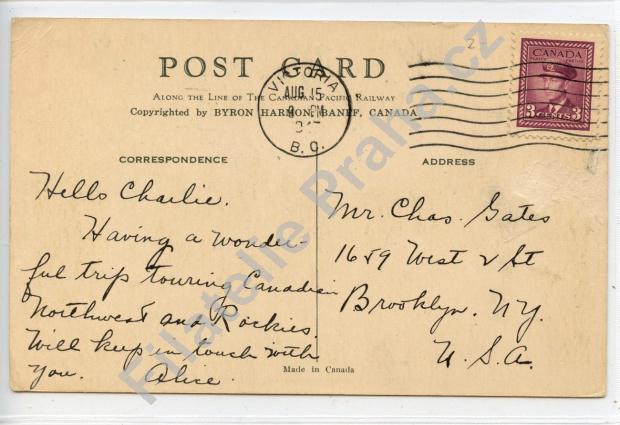 POST CARD
ALONG THE LINE OF THE CANADIAN PACIFIC RAILWAY
Copyrighted by BYRON HARMON, BANFF, CANADA
VICTORIA
AUG 15
PM
B.C.
2
CANADA
3 CENTS 3
CORRESPONDENCE
ADDRESS
Hello Charlie.
Having a wonder-
ful trip touring Canadian
Northwest and Rockies.
Will keep in touch with
you. Alice.
Mr. Chas. Gates
1659 West 2 St
Brooklyn. N.Y.
U.S.A.
Made in Canada
Filatelie Praha.cz